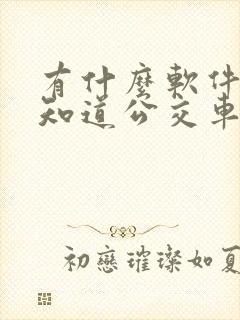 有什麼軟件
知道公交車
初戀璀璨如夏